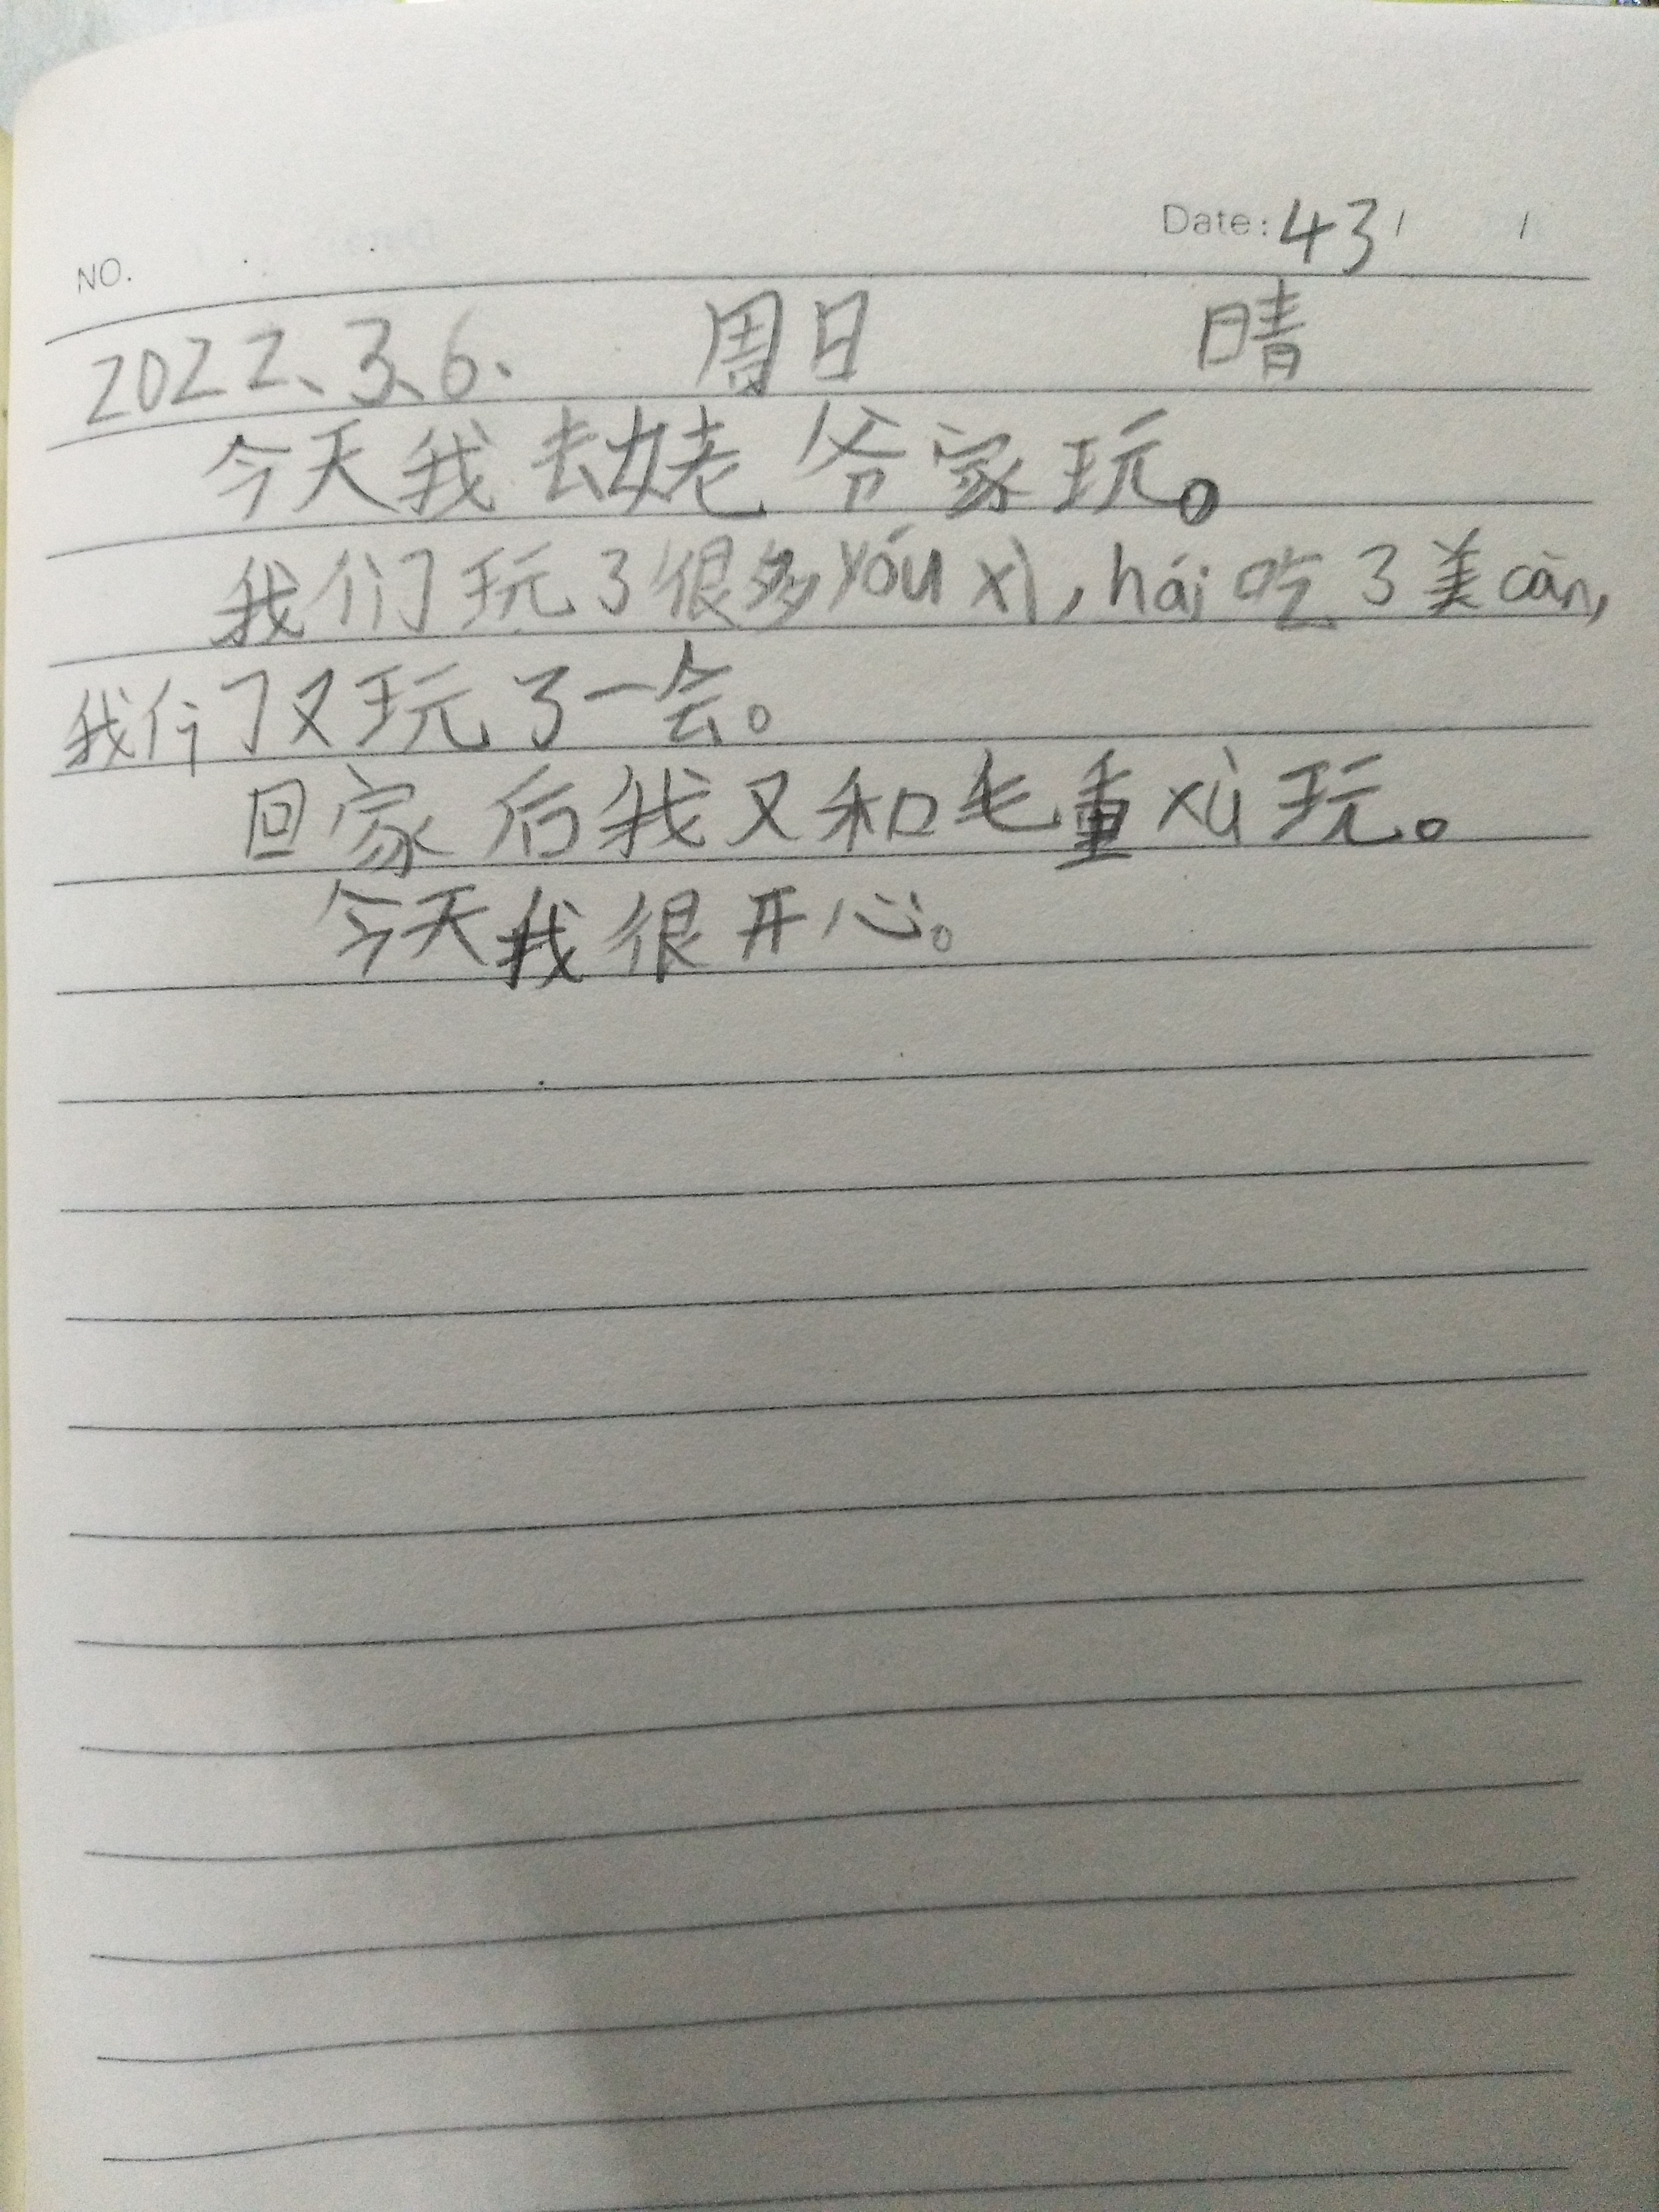 Date: 43 / /
NO.
2022、3、6、 周日 晴
今天我去姥爷家玩。
我们玩了很多yóu xì,hái吃了美cān,
我们又玩了一会。
回家后我又和毛重xù玩。
今天我很开心。